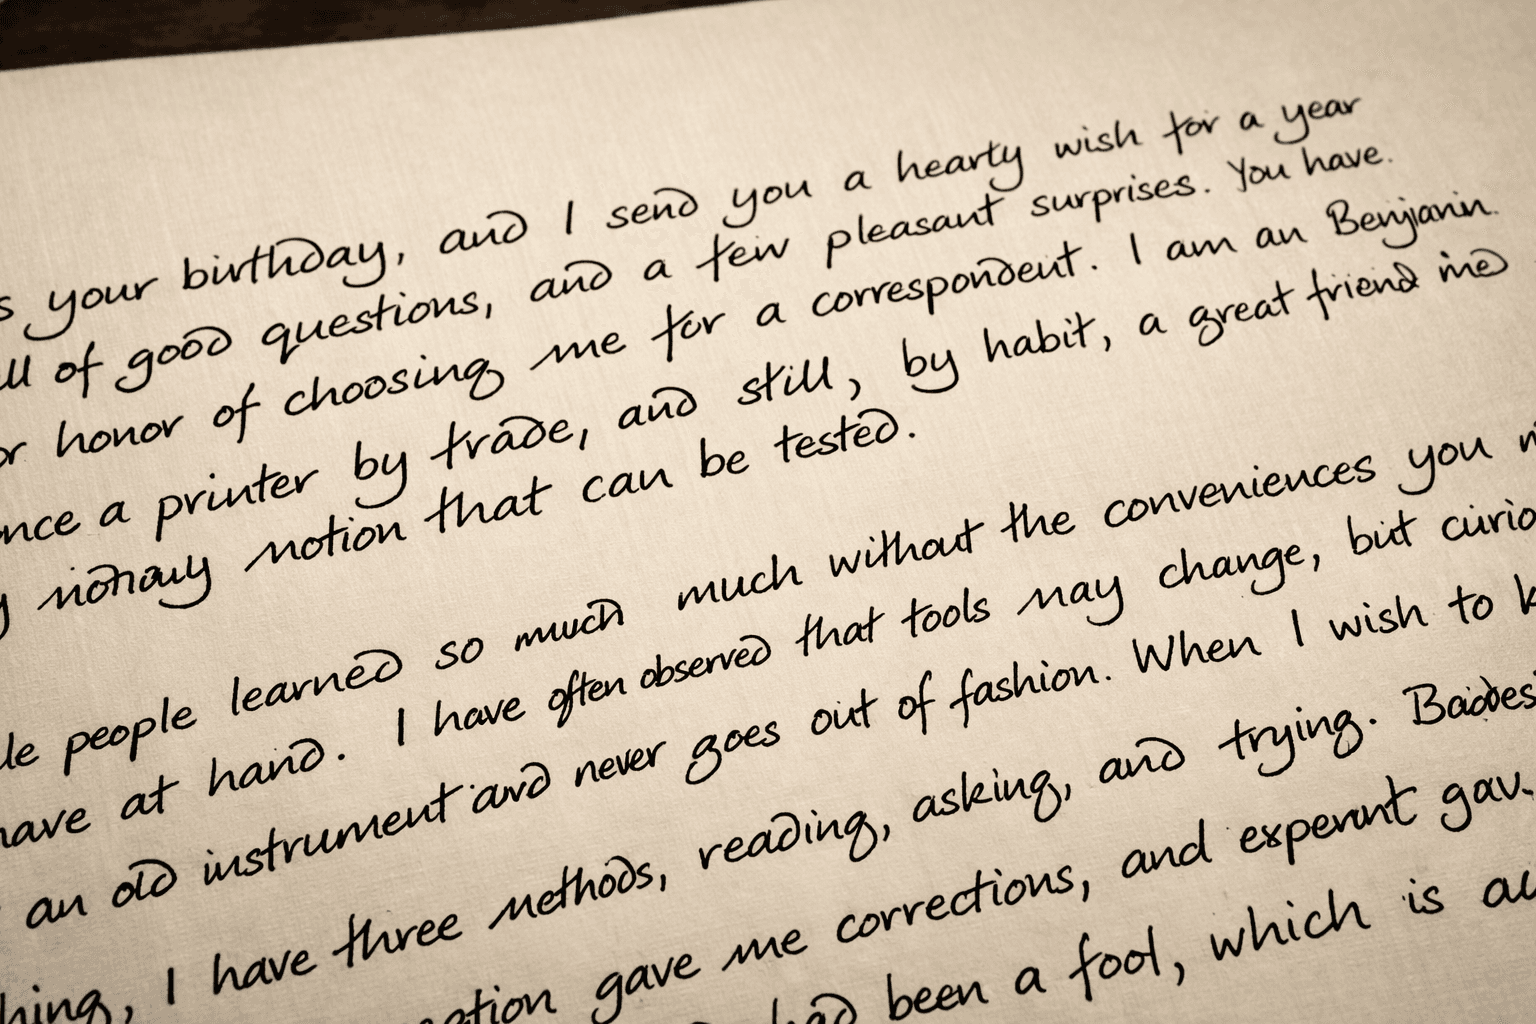 s your birthday, and I send you a hearty wish for a year
ll of good questions, and a few pleasant surprises. You have.
or honor of choosing me for a correspondent. I am an Benjianin.
nce a printer by trade, and still, by habit, a great friend
y notion that can be tested.
le people learned so much much without the conveniences you
have at hand. I have often observed that tools may change, but curio
an old instrument and never goes out of fashion. When I wish to k
hing, I have three methods, reading, asking, and trying.
ation gave me corrections, and gav
had been a fool, which is au